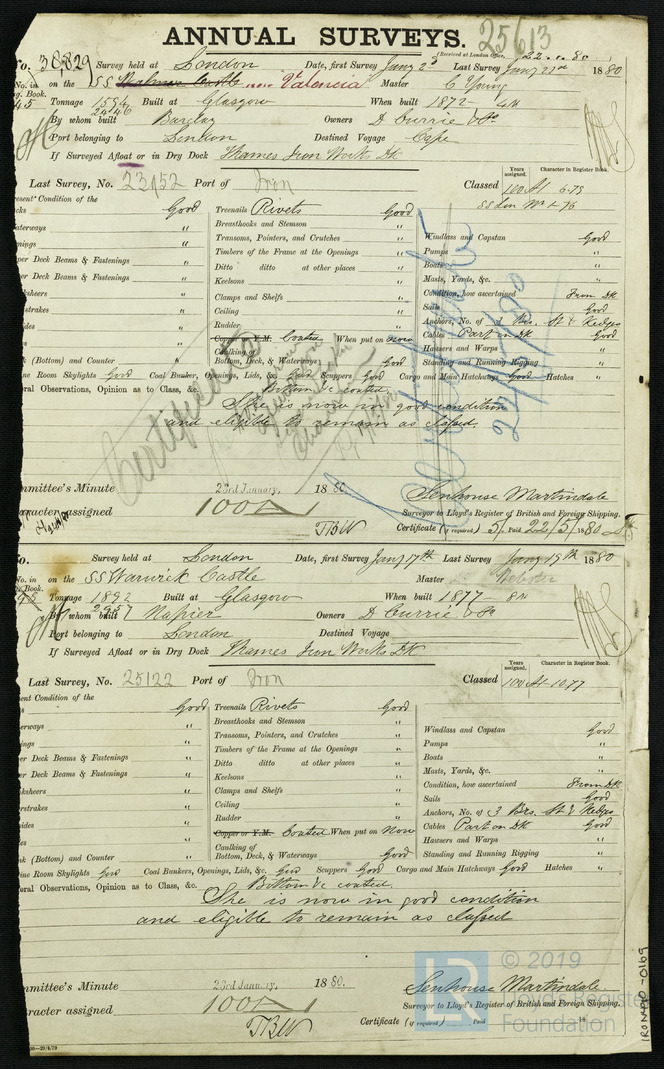 ANNUAL SURVEYS.
25613
(Received at London Office, 22.
No. 38,829 Survey held at London Date, first Survey Jany 2d Last Survey Jany 21st 1880
No. in on the SS Walmer Castle now Valencia Master C Young
g. Book.
45 Tonnage 1594 Built at Glasgow When built 1872
2446
By whom built Barclay Owners D Currie & Co
Port belonging to London Destined Voyage Cape
If Surveyed Afloat or in Dry Dock Thames Iron Works Dk
Years assigned. Character in Register Book.
Last Survey, No. 23952 Port of Iron Classed 100A1 6.79
SS Lon
esent Condition of the
cks Good Treenails Rivets Good
aterways " Breasthooks and Stemson "
nings " Transoms, Pointers, and Crutches " Windlass and Capstan Good
per Deck Beams & Fastenings " Timbers of the Frame at the Openings " Pumps "
er Deck Beams & Fastenings " Ditto ditto at other places " Boats "
Keelsons " Masts, Yards, &c. "
ksheers " Clamps and Shelfs " Condition, how ascertained From Dk
rstrakes " Ceiling " Sails Good
ides " Rudder " Anchors, No. of Brs. St & Kedges
Copper or Y.M. Coated When put on now Cables Part on Dk Good
Caulking of Hawsers and Warps "
k (Bottom) and Counter " Bottom, Deck, & Waterways Good Standing and Running Rigging "
ine Room Skylights Good Coal Bunker, Openings, Lids, &c. Good Scuppers Good Cargo and Main Hatchways Good Hatches "
ral Observations, Opinion as to Class, &c. Bottom &c coated
She is now in good condition
and eligible to remain as classed.
Certificate
mmittee's Minute 23rd January, 1880 Senhouse Martindale
aracter assigned 100A1 Surveyor to Lloyd's Register of British and Foreign Shipping.
TBW Certificate (if required) 5/. Paid 22/5/1880
No. Survey held at London Date, first Survey Jany 17th Last Survey Jany 19th 1880
No. in on the SS Warwick Castle Master Webster
g. Book.
95 Tonnage 1892 Built at Glasgow When built 1877 8
2957
By whom built Napier Owners D Currie & Co
Port belonging to London Destined Voyage
If Surveyed Afloat or in Dry Dock Thames Iron Works Dk
Years assigned. Character in Register Book.
Last Survey, No. 25122 Port of Iron Classed 100A1 10.77
ent Condition of the
Good Treenails Rivets Good
erways " Breasthooks and Stemson "
ings " Transoms, Pointers, and Crutches " Windlass and Capstan Good
er Deck Beams & Fastenings " Timbers of the Frame at the Openings " Pumps "
er Deck Beams & Fastenings " Ditto ditto at other places " Boats "
Keelsons " Masts, Yards, &c. "
ksheers " Clamps and Shelfs " Condition, how ascertained From Dk
rstrakes " Ceiling " Sails Good
ides " Rudder " Anchors, No. of 3 Brs. St & Kedges
Copper or Y.M. Coated When put on Now Cables Part on Dk Good
Caulking of Hawsers and Warps "
k (Bottom) and Counter " Bottom, Deck, & Waterways Good Standing and Running Rigging "
ine Room Skylights Good Coal Bunkers, Openings, Lids, &c. Good Scuppers Good Cargo and Main Hatchways Good Hatches "
ral Observations, Opinion as to Class, &c. Bottom &c coated.
She is now in good condition
and eligible to remain as classed
mmittee's Minute 23rd January, 1880. Senhouse Martindale.
aracter assigned 100A1 Surveyor to Lloyd's Register of British and Foreign Shipping.
TBW Certificate (if required) Paid 18
LR © 2019
Lloyd's Register
Foundation
IRON490-0169